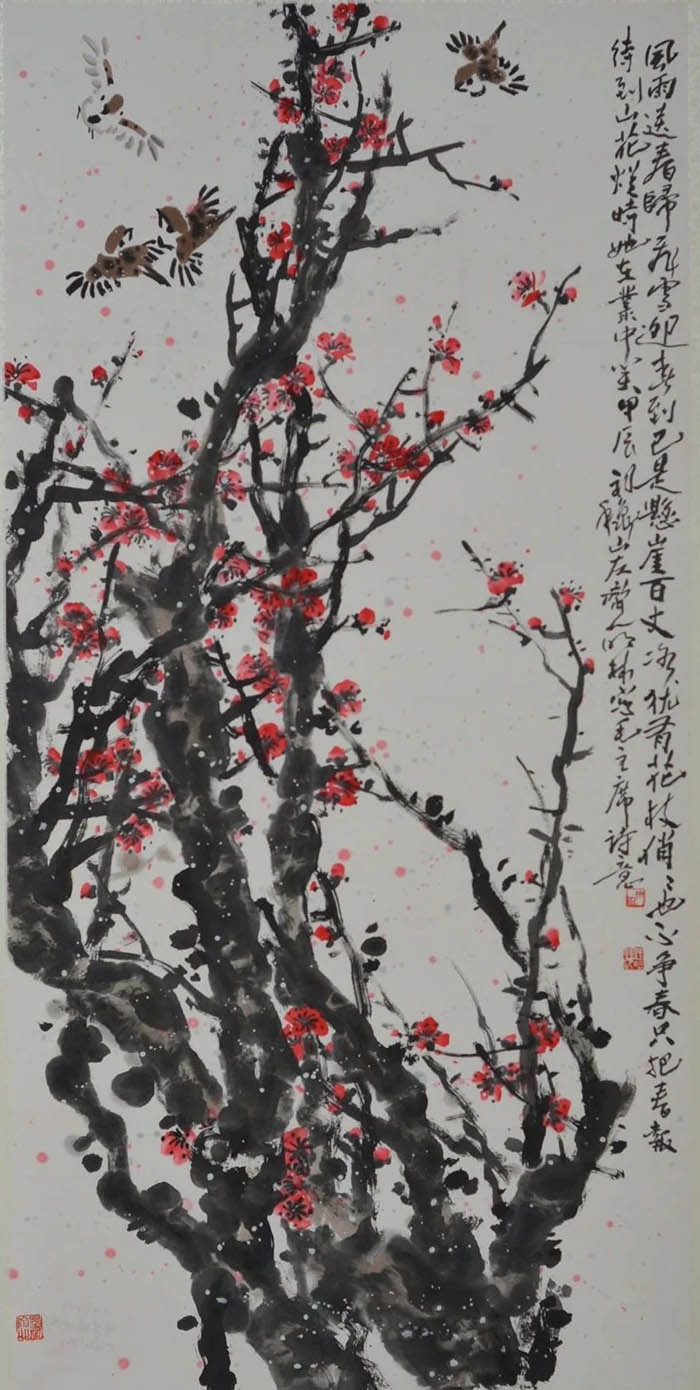 風雨送春歸飛雪迎春到已是懸崖百丈冰犹有花枝俏俏也不争春只把春報
待到山花爛時她在叢中笑甲辰 山友 明林寫毛主席詩意